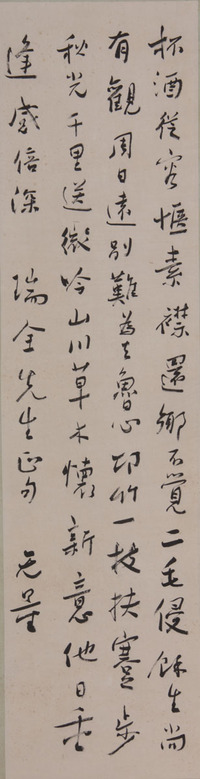 杯酒從容愜素襟還鄉不覺二毛侵餘生尚
有觀周日遠別難為去魯心邛竹一枝扶蹇步
秋光千里送微吟山川草木懷新意他日重
逢感倍深 瑞全先生正句 无量